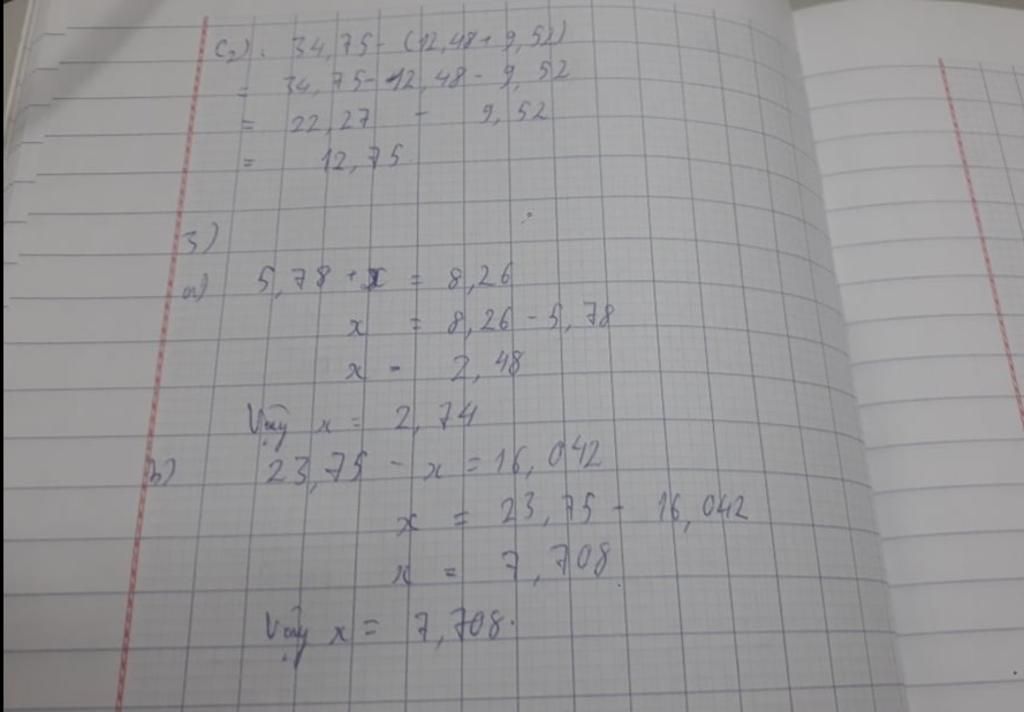 C₂). 34,75 - (12,48 + 9,52)
= 34,75 - 12,48 - 9,52
= 22,27 - 9,52
= 12,75
3)
a) 5,78 + x = 8,26
x = 8,26 - 5,78
x = 2,48
Vậy x = 2,74
b) 23,75 - x = 16,042
x = 23,75 - 16,042
x = 7,708
Vậy x = 7,708.